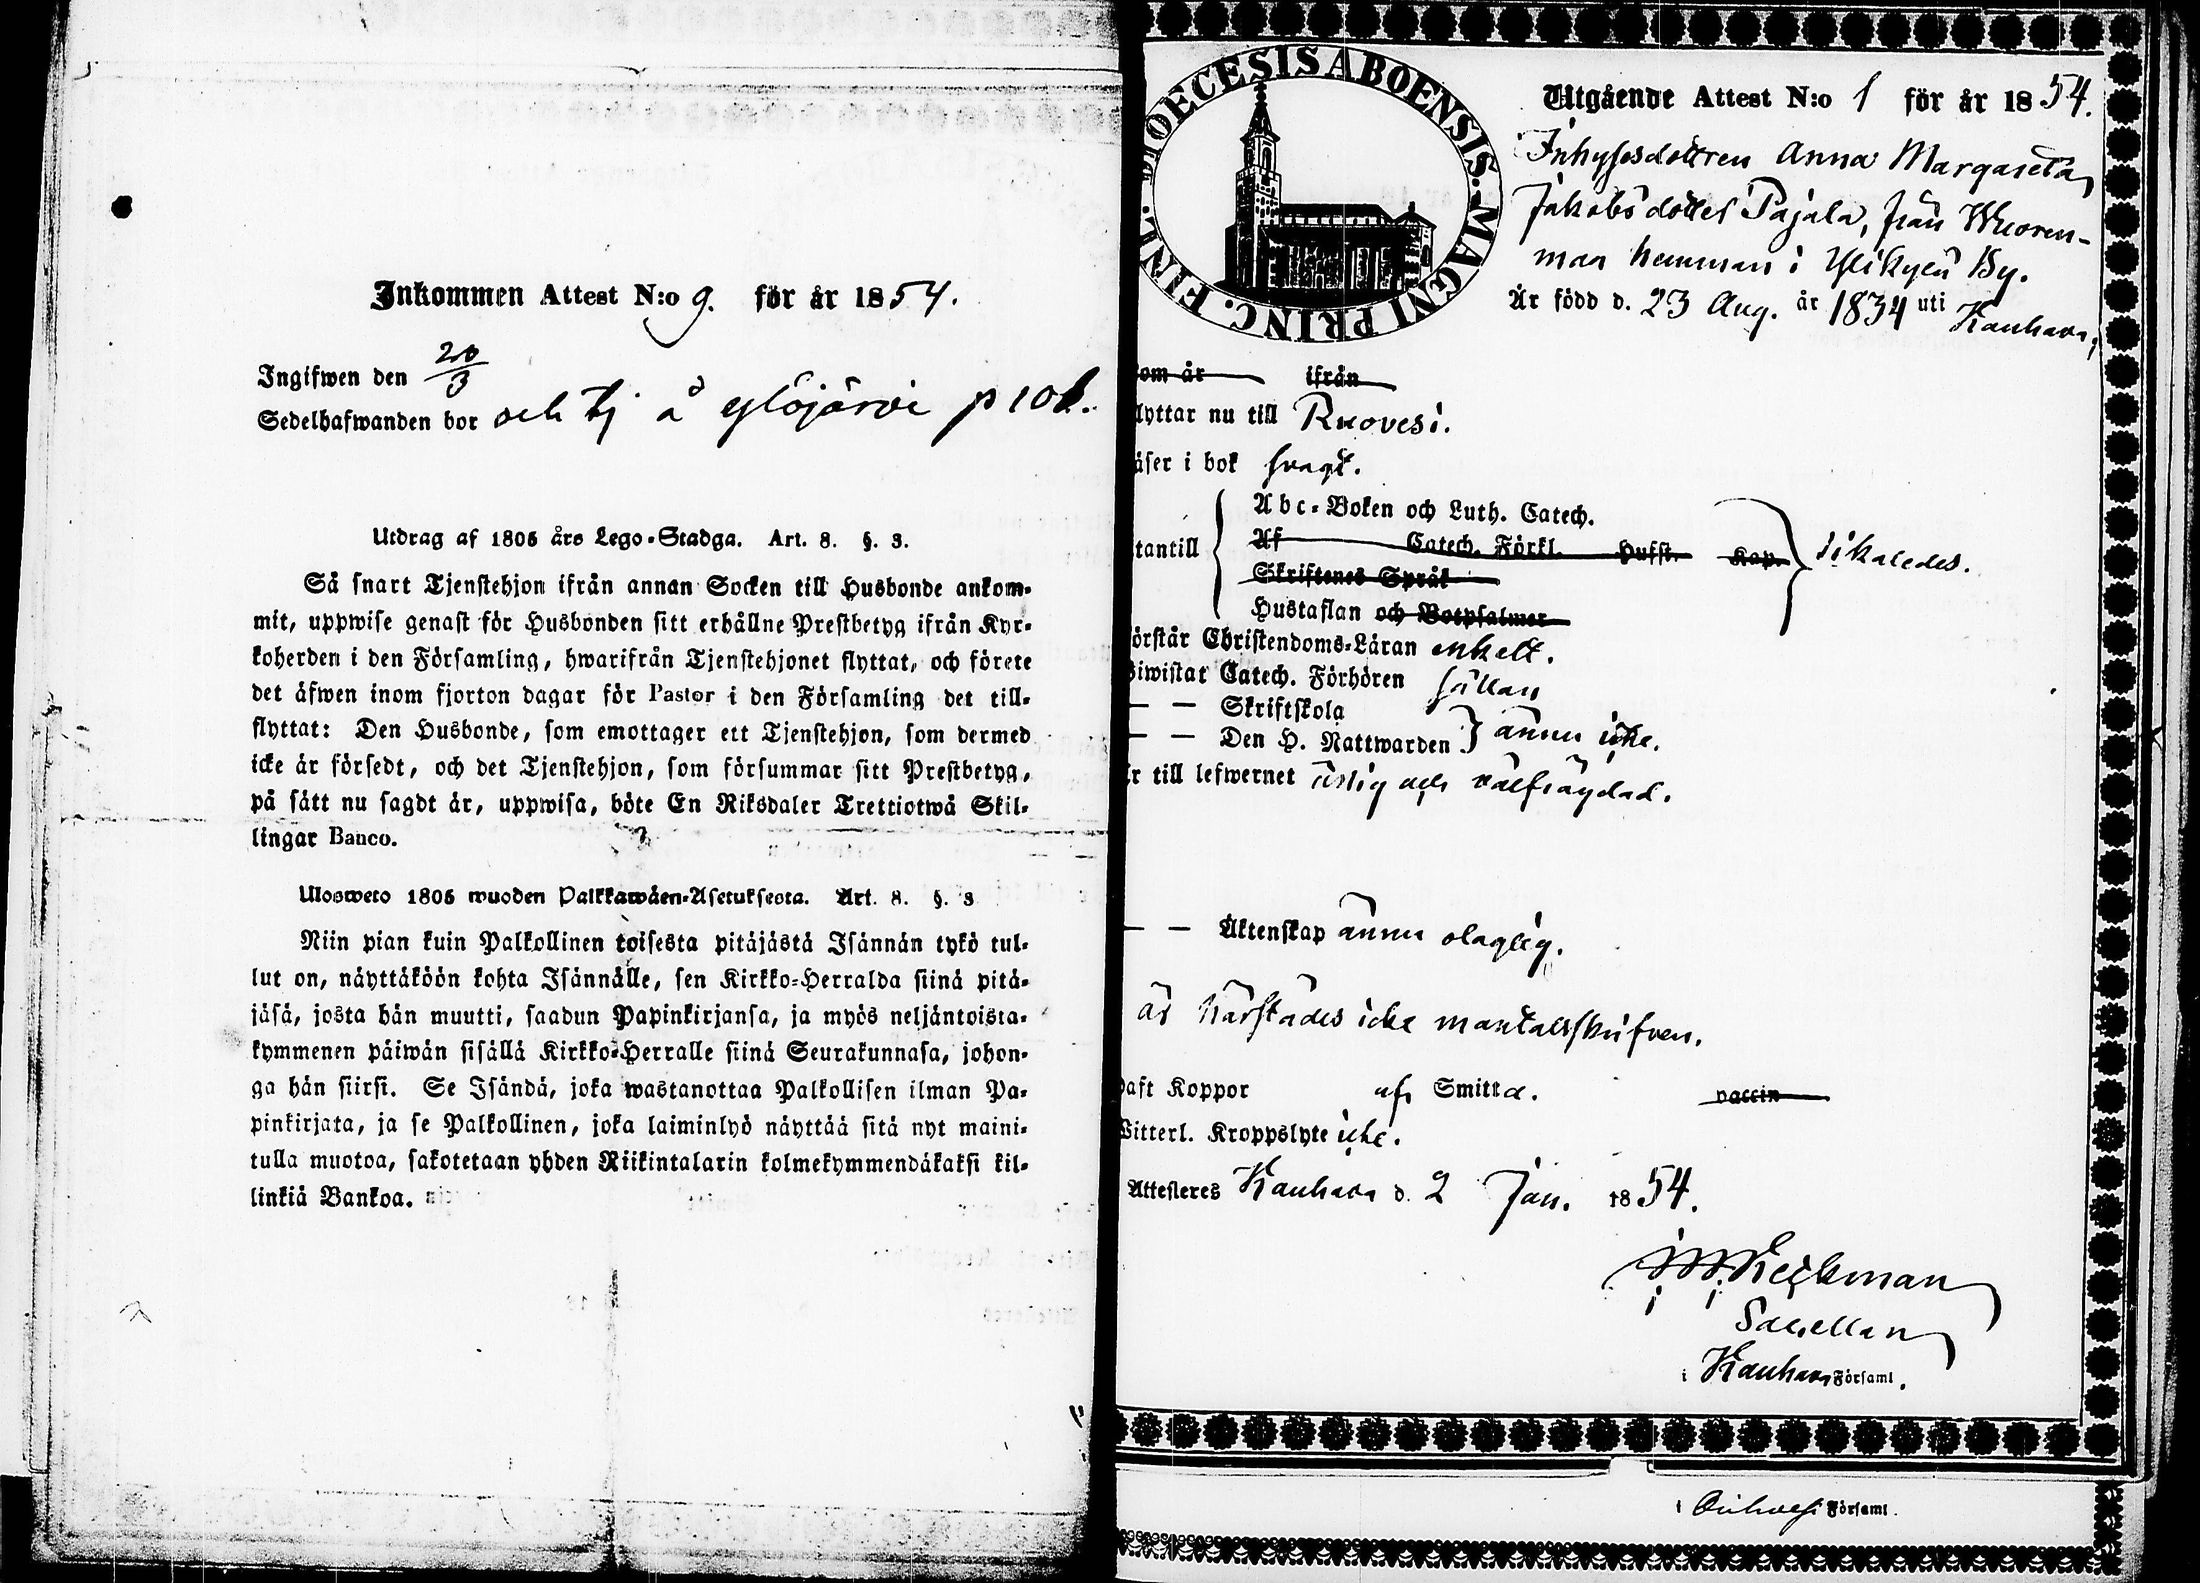 Inkommen Attest N:o 9. för år 1854.
Ingifwen den 20/3
Sedelhafwanden bor och tj å Ylöjärvi p 101.
Utdrag af 1805 års Lego-Stadga. Art. 8. §. 3.
Så snart Tjenstehjon ifrån annan Socken till Husbonde ankom-
mit, uppwise genast för Husbonden sitt erhållne Prestbetyg ifrån Kyr-
koherden i den Församling, hwarifrån Tjenstehjonet flyttat, och förete
det äfwen inom fjorton dagar för Pastor i den Församling det till-
flyttat: Den Husbonde, som emottager ett Tjenstehjon, som dermed
icke är försedt, och det Tjenstehjon, som försummar sitt Prestbetyg,
på sätt nu sagdt är, uppwisa, böte En Riksdaler Trettiotwå Skil-
lingar Banco.
Ulosweto 1805 wuoden Palkkawäen-Asetuksesta. Art. 8. §. 3
Niin pian kuin Palkollinen toisesta pitäjästä Isännän tykö tul-
lut on, näyttäköön kohta Isännälle, sen Kirkko-Herralda siinä pitä-
jäsä, josta hän muutti, saadun Papinkirjansa, ja myös neljäntoista-
kymmenen päiwän sisällä Kirkko-Herralle siinä Seurakunnasa, johon-
ga hän siirsi. Se Isändä, joka wastanottaa Palkollisen ilman Pa-
pinkirjata, ja se Palkollinen, joka laiminlyö näyttää sitä nyt maini-
tulla muotoa, sakotetaan yhden Riikintalarin kolmekymmendäkaksi kil-
linkiä Bankoa.
DIOECESIS ABOENSIS. MAGNI PRINC. FINL.
Utgående Attest N:o 1 för år 1854.
Inhysesdottren Anna Margareta
Jakobsdotter Pajala, från Wuoren-
maa hemman i Ylikylä By.
År född d. 23 Aug. år 1834 uti Kauhava,
om år ifrån
lyttar nu till Ruovesi.
äser i bok svagt.
Abc-Boken och Luth. Catech.
tantill Af Catech. Förkl. Husst. Kap. likaledes.
Skriftenes Språk
Hustaflan och Botpsalmer
örstår Christendoms-Läran enkelt.
iwistat Catech. Förhören sällan
— — Skriftskola
— — Den H. Nattwarden } ännu icke.
r till lefwernet ärlig och välfrägdad.
— — Äktenskap ännu olaglig.
är härstädes icke mantalsskrifven.
aft Koppor af Smitta. vaccin
itterl. Kroppslyte icke.
Attesteres Kauhava d. 2 Jan. 1854.
Sacellan
i Kauhava Församl.
i Församl.